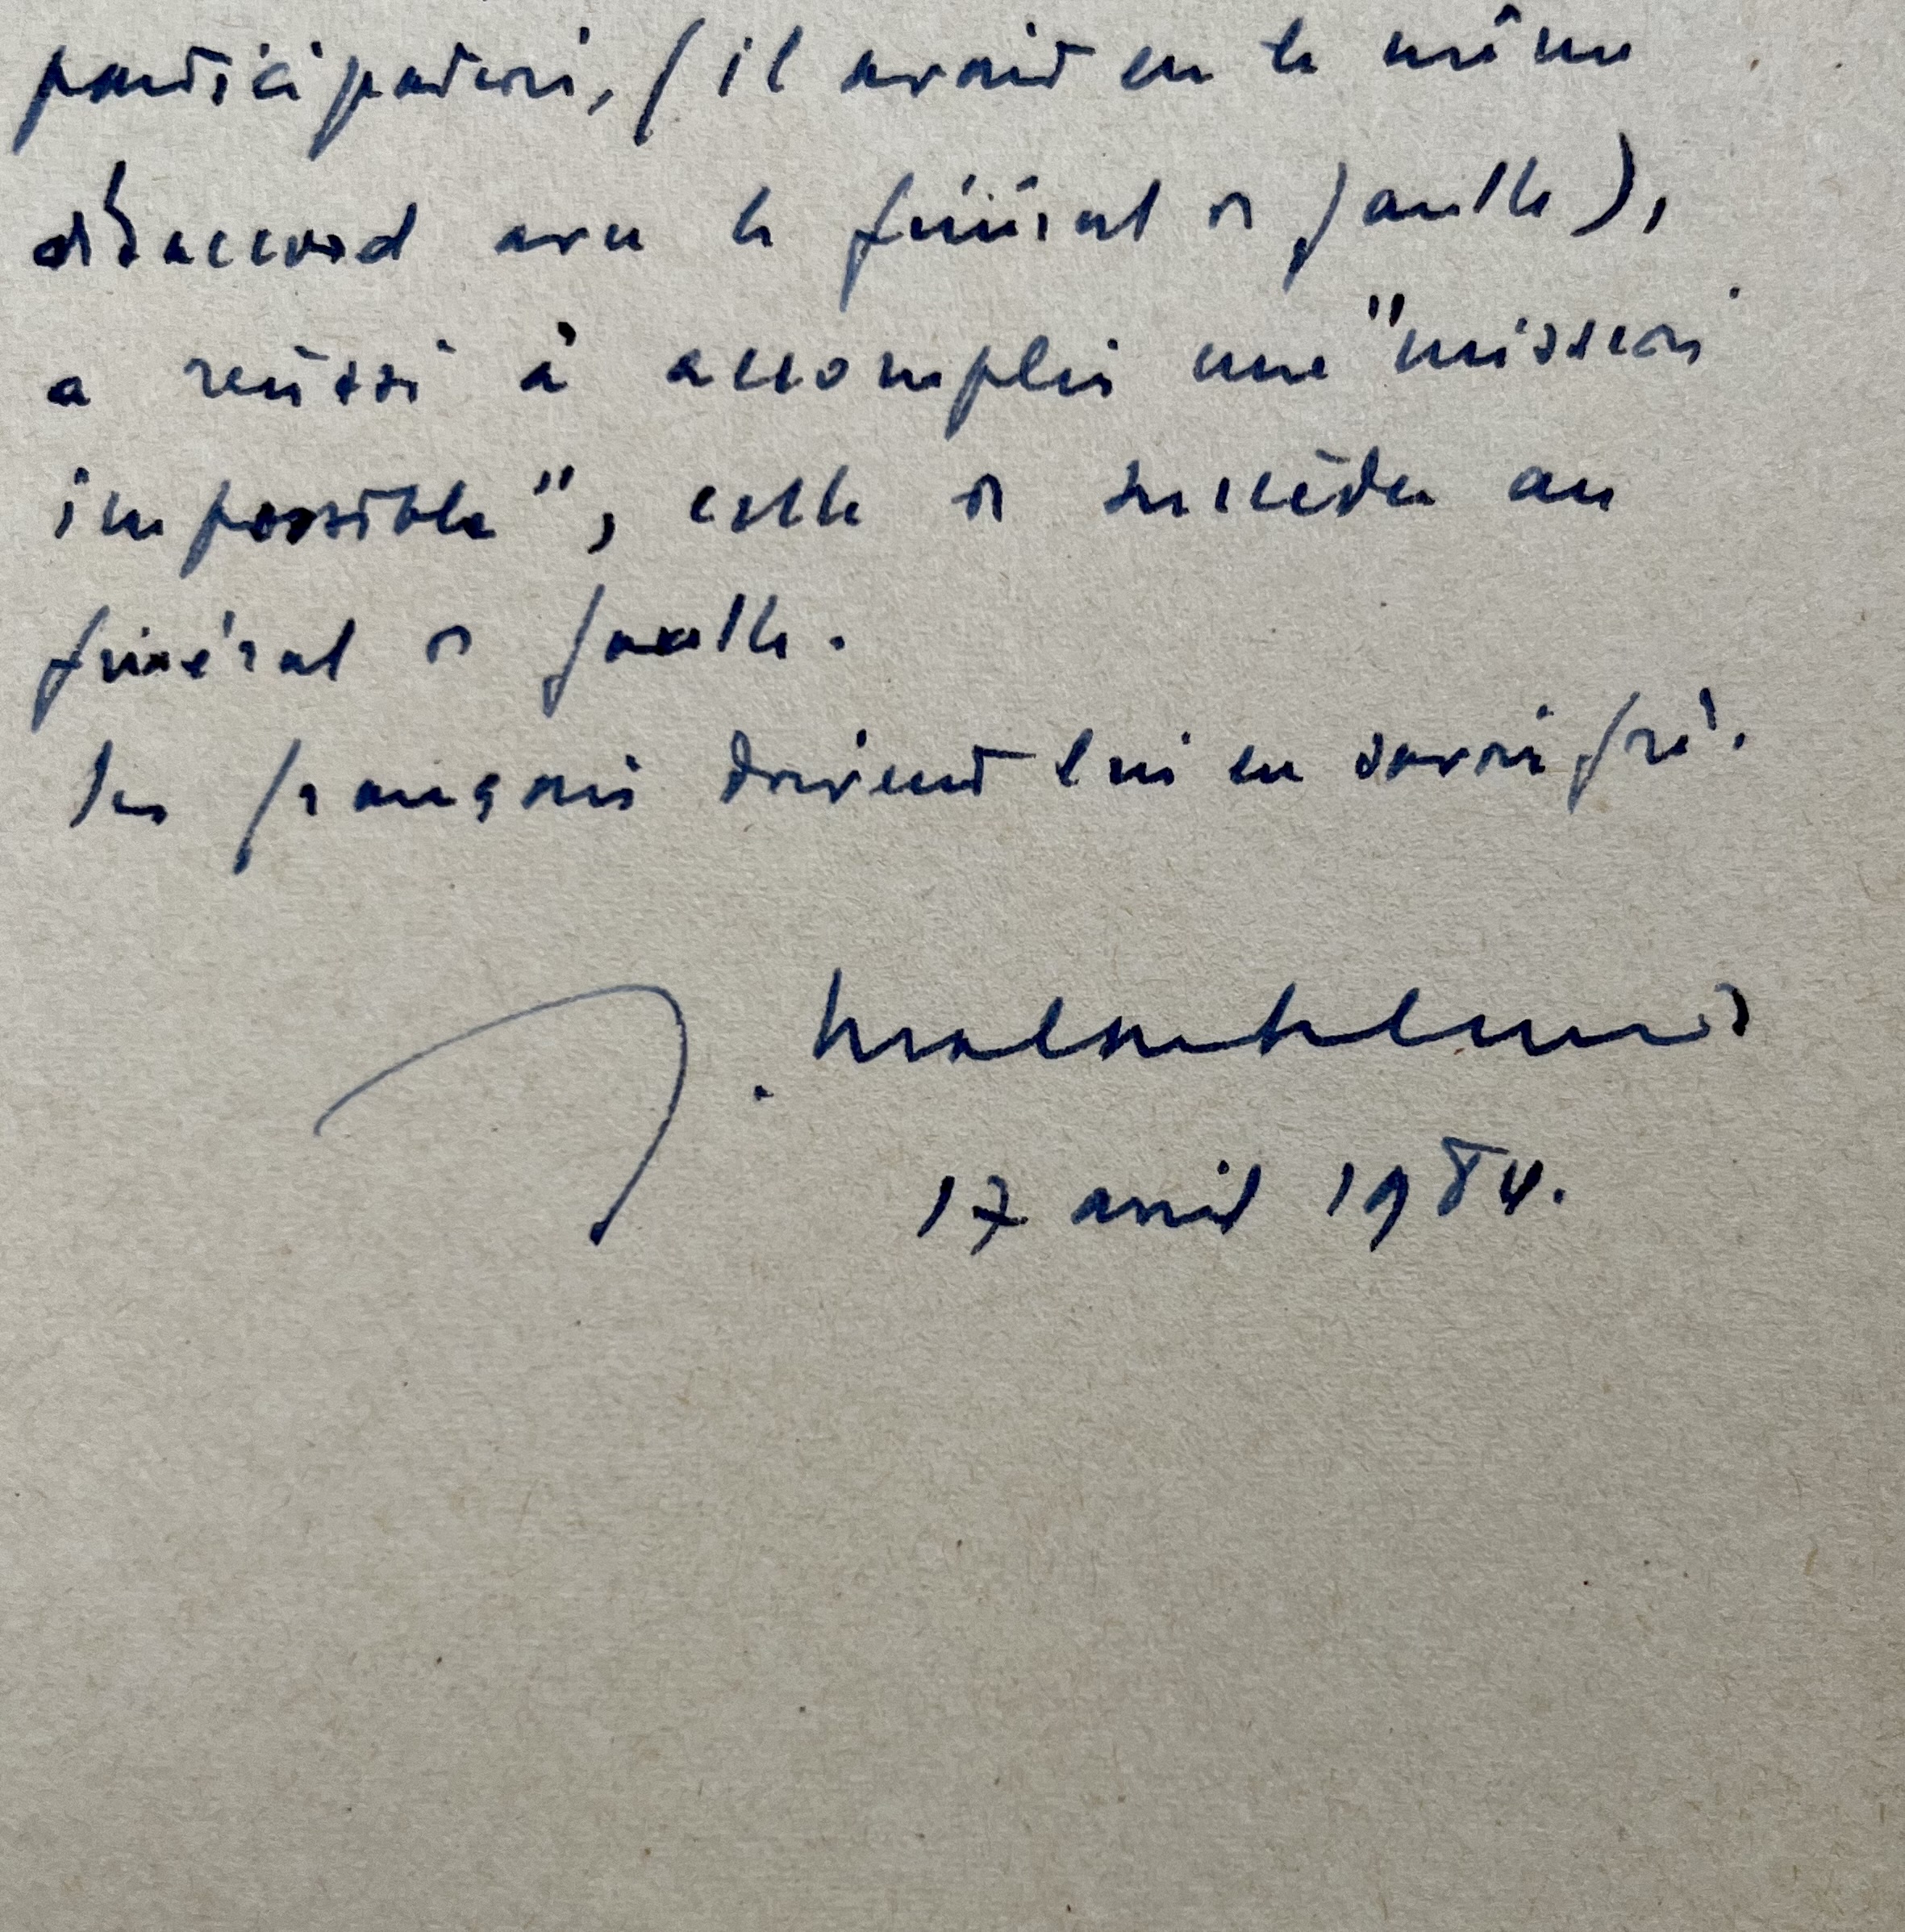 participation, (il avait eu le même
désaccord avec le général de Gaulle),
a réussi à accomplir une "mission
impossible", celle de succéder au
général de Gaulle.
Les français doivent lui en savoir gré.
17 avril 1984.